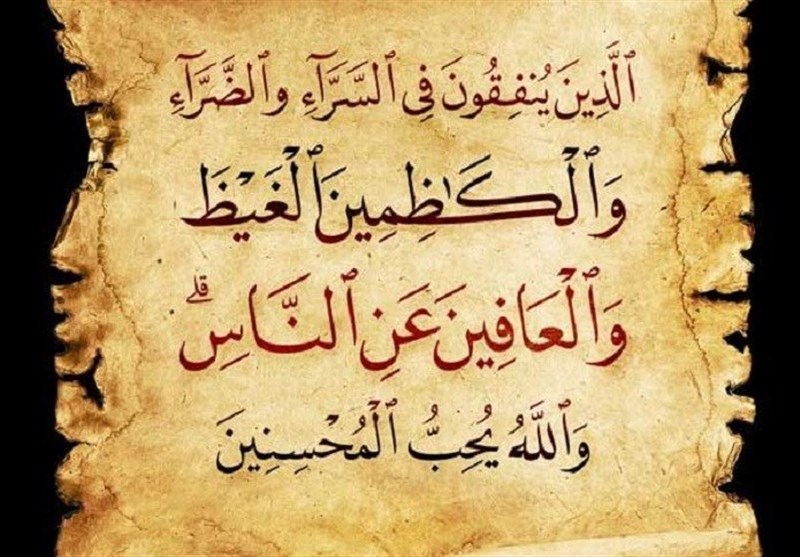 ٱلَّذِينَ يُنفِقُونَ فِى ٱلسَّرَّآءِ وَٱلضَّرَّآءِ
وَٱلْكَـٰظِمِينَ ٱلْغَيْظَ
وَٱلْعَافِينَ عَنِ ٱلنَّاسِ ۗ
وَٱللَّهُ يُحِبُّ ٱلْمُحْسِنِينَ